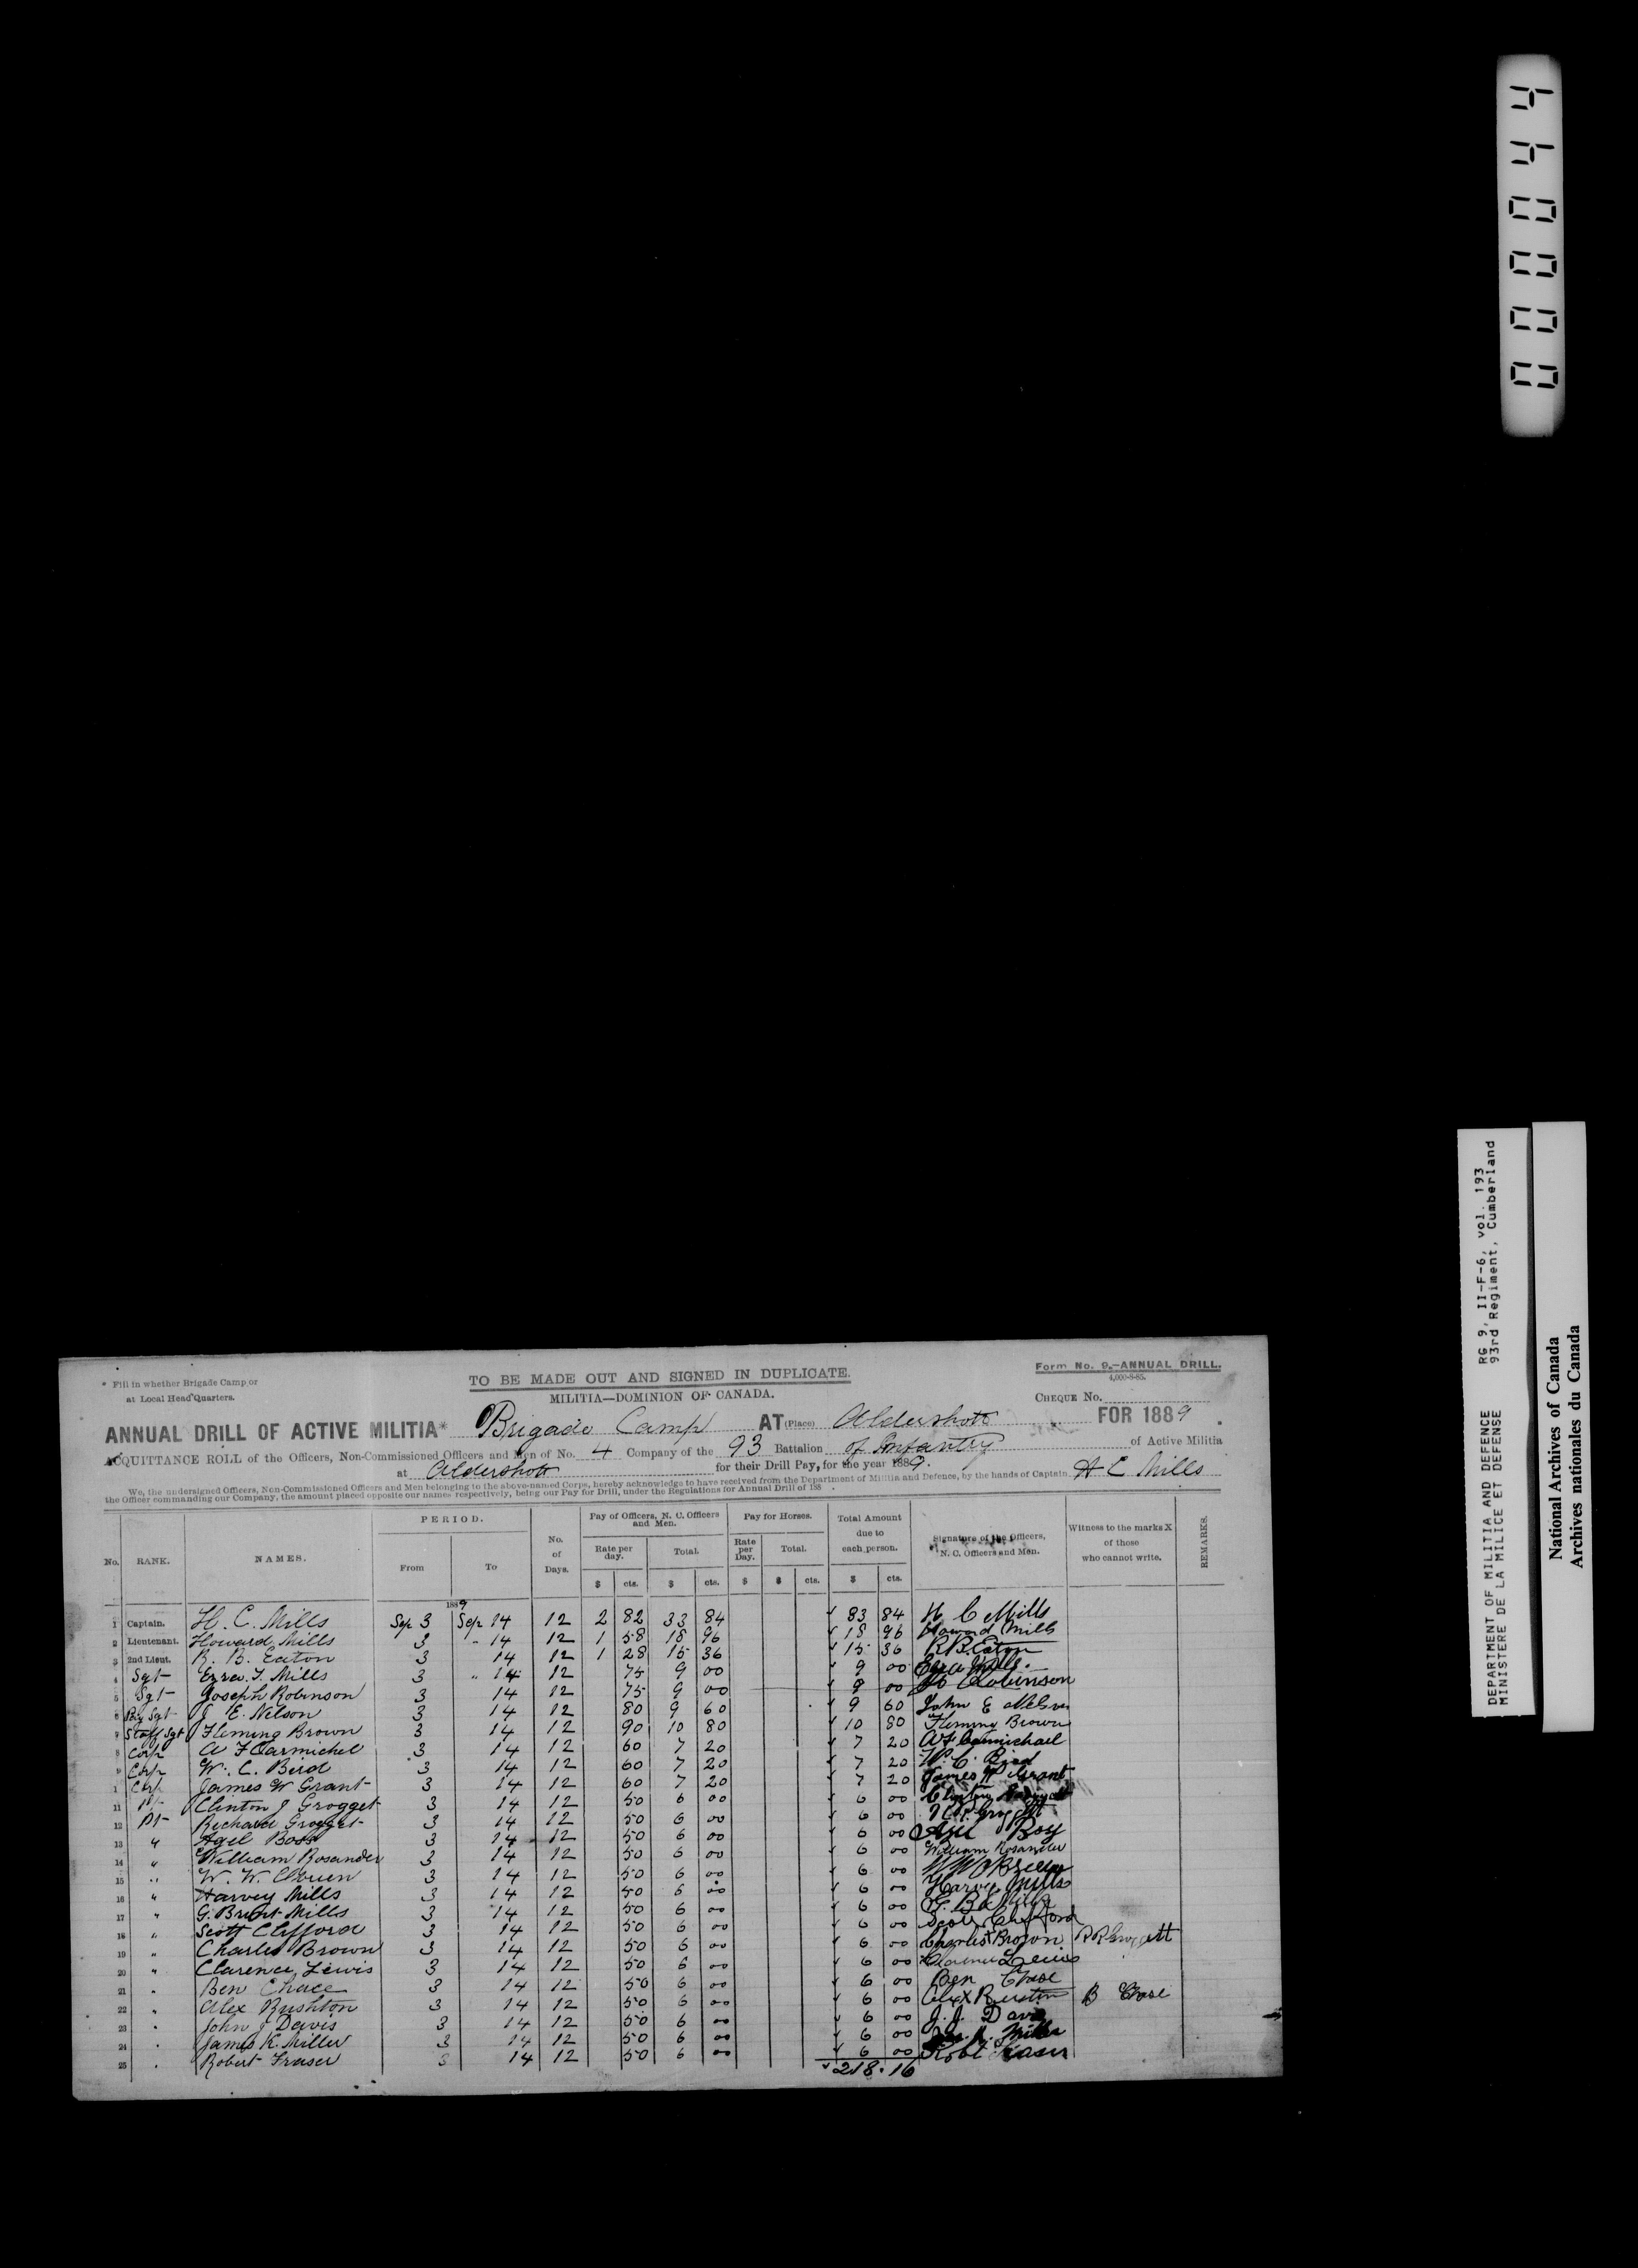 * Fill in whether Brigade Camp or
at Local Head Quarters.
TO BE MADE OUT AND SIGNED IN DUPLICATE.
MILITIA—DOMINION OF CANADA.
Form No. 9.—ANNUAL DRILL.
4,000-8-85.
CHEQUE No.
ANNUAL DRILL OF ACTIVE MILITIA* Brigade Camp AT (Place) Aldershott FOR 1889.
ACQUITTANCE ROLL of the Officers, Non-Commissioned Officers and Men of No. 4 Company of the 93 Battalion of Infantry of Active Militia
at Aldershott for their Drill Pay, for the year 1889.
We, the undersigned Officers, Non-Commissioned Officers and Men belonging to the above-named Corps, hereby acknowledge to have received from the Department of Militia and Defence, by the hands of Captain H C Mills
the Officer commanding our Company, the amount placed opposite our names respectively, being our Pay for Drill, under the Regulations for Annual Drill of 188 .
No. RANK. NAMES. PERIOD. From To No. of Days. Pay of Officers, N. C. Officers and Men. Rate per day. $ cts. Total. $ cts. Pay for Horses. Rate per Day. $ Total. $ cts. Total Amount due to each person. $ cts. Signature of the Officers, N. C. Officers and Men. Witness to the marks X of those who cannot write. REMARKS.
1889
1 Captain. H. C. Mills Sep 3 Sep 14 12 2 82 33 84 83 84 H C Mills
2 Lieutenant. Howard Mills 3 " 14 12 1 58 18 96 18 96 Howard Mills
3 2nd Lieut. R. B. Eaton 3 14 12 1 28 15 36 15 36 R B Eaton
4 Sgt Ezra. T. Mills 3 " 14 12 75 9 00 9 00 Ezra Mills.
5 Sgt Joseph Robinson 3 14 12 75 9 00 9 00 Jo Robinson
6 Pay Sgt J E. Nelson 3 14 12 80 9 60 9 60 John E Nelson
7 Staff Sgt Fleming Brown 3 14 12 90 10 80 10 80 Fleming Brown
8 Corp A F Carmichel 3 14 12 60 7 20 7 20 A F Carmichael
9 Corp W. C. Bird 3 14 12 60 7 20 7 20 W. C. Bird
1 Corp James W Grant 3 14 12 60 7 20 7 20 James W Grant
11 Pt Clinton J Grogget 3 14 12 50 6 00 6 00 Clinton
12 Pt Richard Grogget 3 14 12 50 6 00 6 00
13 " Agil Boss 3 14 12 50 6 00 6 00
14 " William Rosander 3 14 12 50 6 00 6 00 William Rosander
15 " W. W. Obrien 3 14 12 50 6 00 6 00 W W OBrien
16 " Harvey Mills 3 14 12 50 6 00 6 00 Harvey Mills
17 " G. Brunt Mills 3 14 12 50 6 00 6 00 G. B Mills
18 " Scott Clifford 3 14 12 50 6 00 6 00 Scott Clifford
19 " Charles Brown 3 14 12 50 6 00 6 00 Charles X Brown R R Groggett
20 " Clarence Lewis 3 14 12 50 6 00 6 00 Clarence Lewis
21 " Ben Chace 3 14 12 50 6 00 6 00 Ben Chase
22 " Alex Rushton 3 14 12 50 6 00 6 00 Alex X Rushton B Chase
23 " John J Davis 3 14 12 50 6 00 6 00 J. J. Davis
24 " James K. Miller 3 14 12 50 6 00 6 00 Jas. K. Miller
25 " Robert Fraser 3 14 12 50 6 00 6 00 Robt Fraser
218.16
000044
DEPARTMENT OF MILITIA AND DEFENCE RG 9, II-F-6, vol. 193
MINISTERE DE LA MILICE ET DEFENSE 93rd Regiment, Cumberland
National Archives of Canada
Archives nationales du Canada